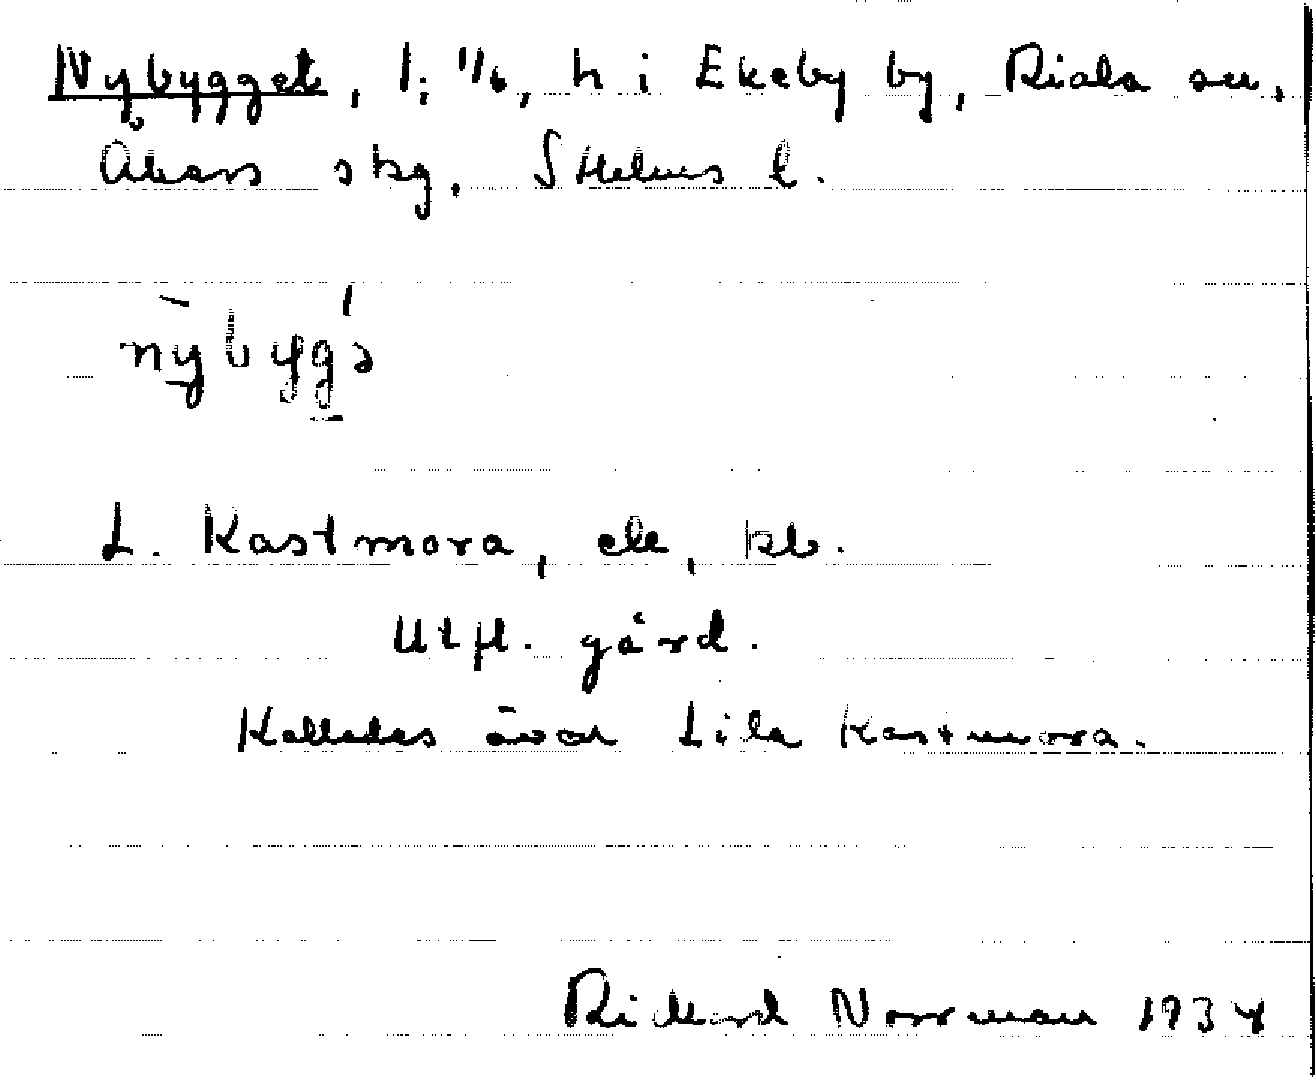 Nybygget, 1:11/6, h i Ekeby by, Riala sn,
Åkers skg, Sthlms l.
nybygə
L. Kastmora, ek, kb.
Utfl. gård.
Kallades även Lilla Kastmora.
Rickard Norrman 1934